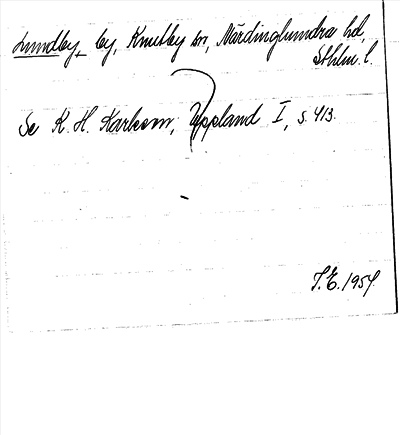 Lundby, by, Knutby sn, Närdinghundra hd,
Sthlm l.
Se K. H. Karlsson, Uppland I, s. 413.
T.E. 1954.